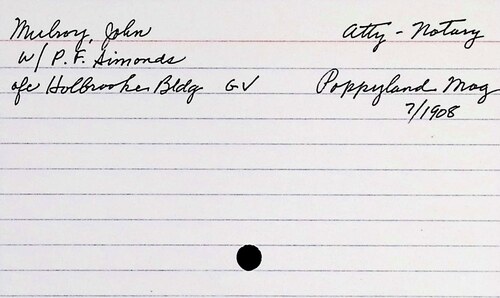 Mulroy, John Atty - Notary
w/ P. F. Simonds
ofc Holbrooke Bldg GV Poppyland Mag
7/1908